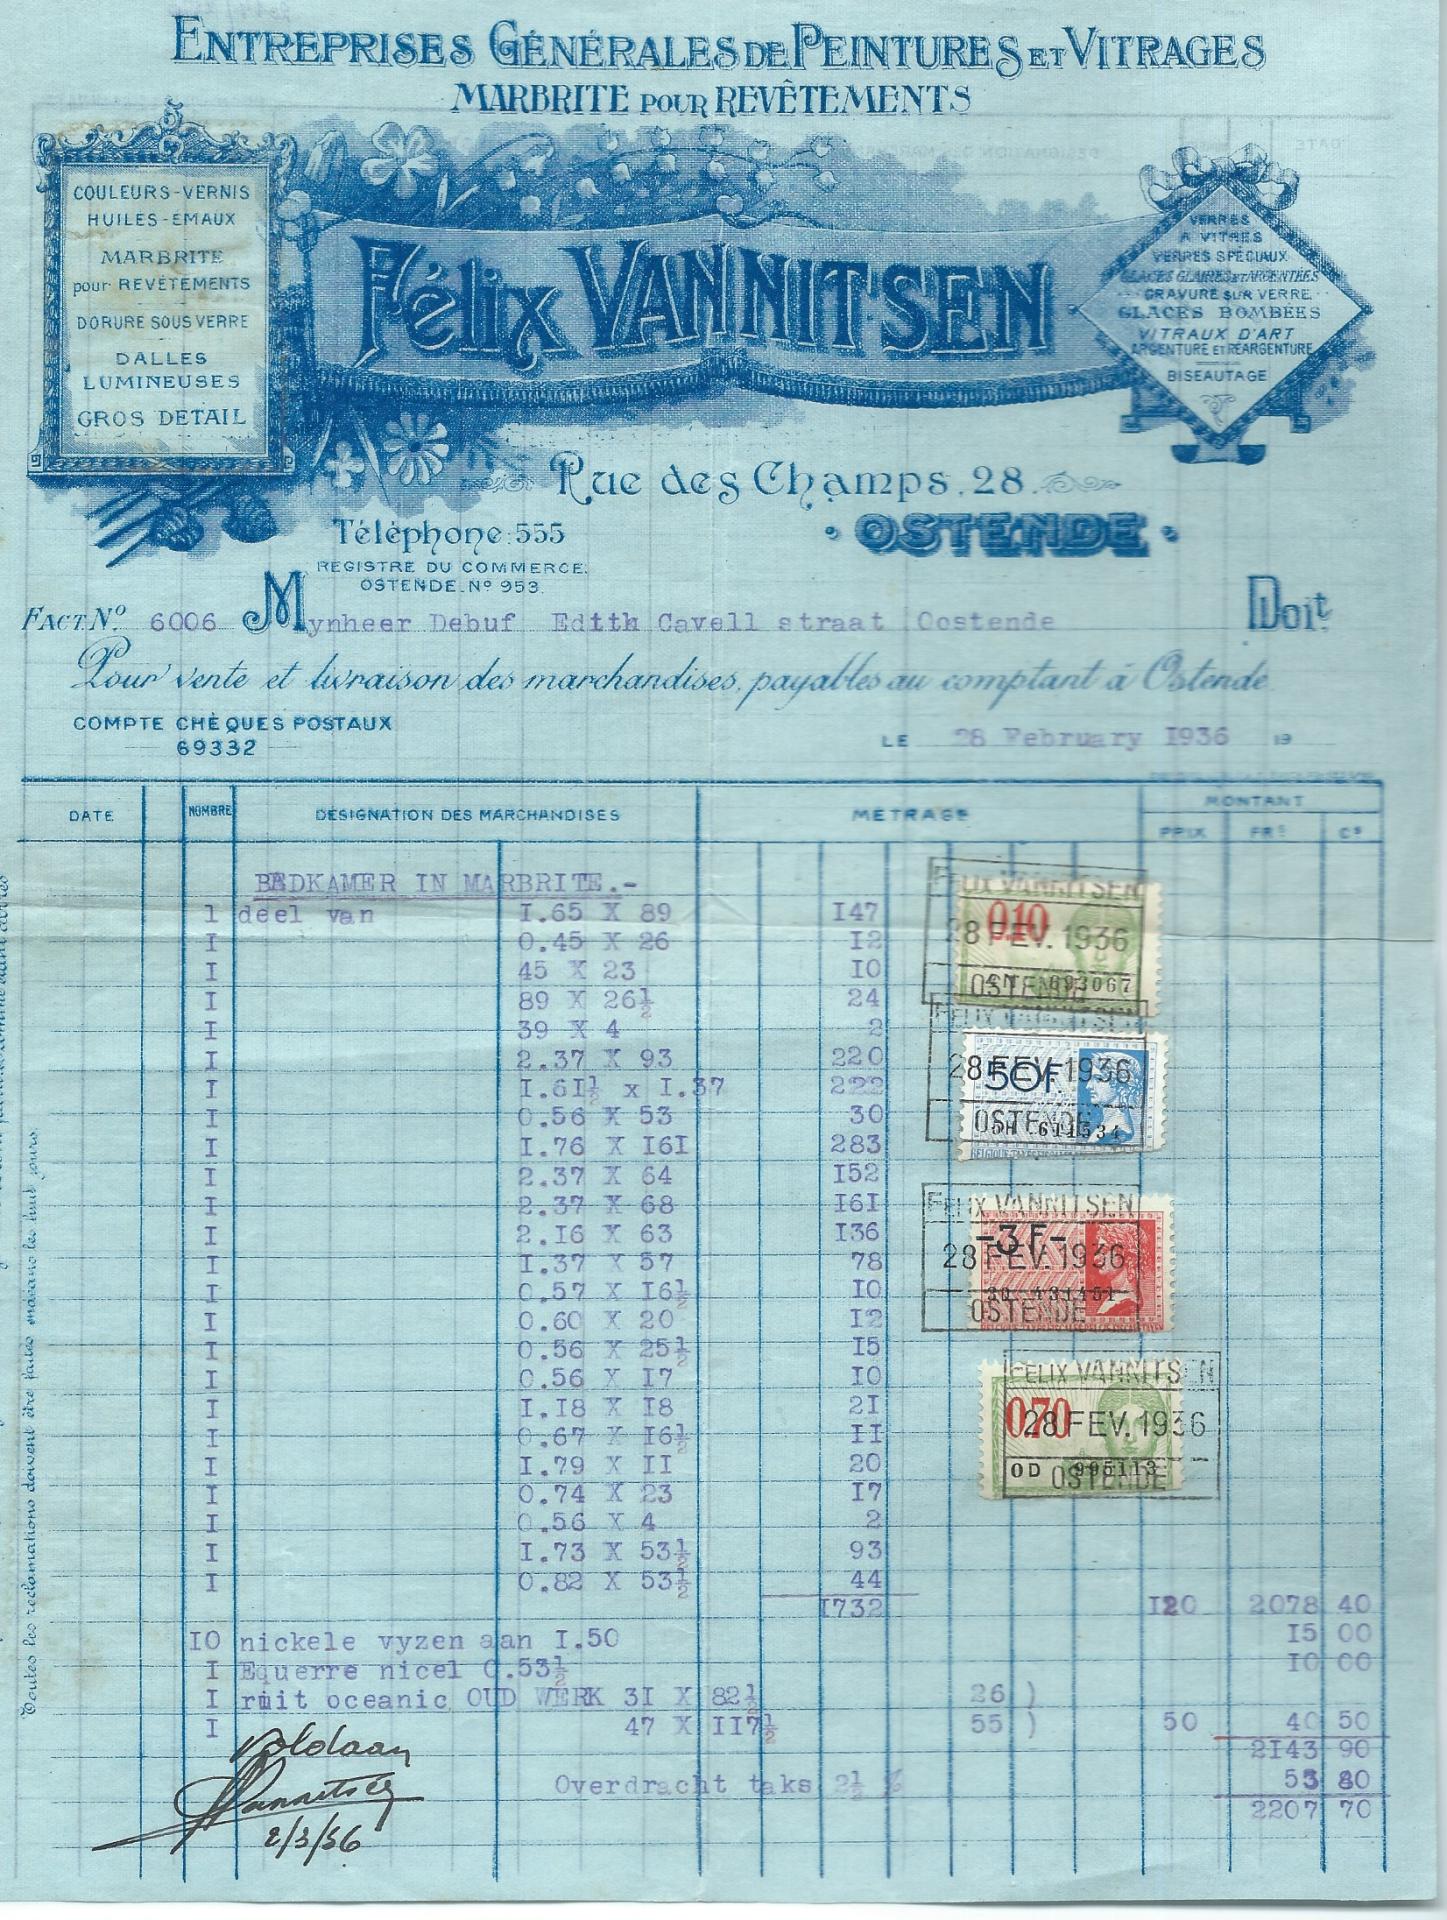 ENTREPRISES GÉNÉRALES DE PEINTURES ET VITRAGES
MARBRITE POUR REVÊTEMENTS
COULEURS-VERNIS
HUILES-EMAUX
MARBRITE
pour REVÊTEMENTS
DORURE SOUS VERRE
DALLES
LUMINEUSES
GROS DETAIL
Félix VANNITSEN
VERRES
A VITRES
VERRES SPÉCIAUX
GLACES CLAIRES ET ARGENTÉES
GRAVURE SUR VERRE
GLACES BOMBÉES
VITRAUX D'ART
ARGENTURE ET REARGENTURE
BISEAUTAGE
Rue des Champs, 28.
OSTENDE
Téléphone: 555
REGISTRE DU COMMERCE.
OSTENDE. Nº 953.
FACT. Nº 6006 Mynheer Debuf Edith Cavell straat Oostende Doit
Pour vente et livraison des marchandises, payables au comptant à Ostende
COMPTE CHÈQUES POSTAUX
69332
LE 28 February 1936 19
DATE NOMBRE DÉSIGNATION DES MARCHANDISES METRAGE MONTANT
PRIX FRS CS
BADKAMER IN MARBRITE.-
1 deel van I.65 X 89 I47
I 0.45 X 26 I2
I 45 X 23 IO
I 89 X 26½ 24
I 39 X 4 2
I 2.37 X 93 220
I I.6I½ x I.37 222
I 0.56 X 53 30
I I.76 X I6I 283
I 2.37 X 64 I52
I 2.37 X 68 I6I
I 2.I6 X 63 I36
I I.37 X 57 78
I 0.57 X I6½ IO
I 0.60 X 20 I2
I 0.56 X 25½ I5
I 0.56 X I7 IO
I I.I8 X I8 2I
I 0.67 X I6½ II
I I.79 X II 20
I 0.74 X 23 I7
I 0.56 X 4 2
I I.73 X 53½ 93
I 0.82 X 53½ 44
I732 I20 2078 40
IO nickele vyzen aan I.50 I5 00
I Equerre nicel 0.53½ IO 00
I ruit oceanic OUD WERK 3I X 82½ 26 )
I 47 X II7½ 55 ) 50 40 50
2I43 90
Overdracht taks 2½ % 53 80
2207 70
FELIX VANNITSEN
0.10
28 FEV. 1936
OSTENDE
693067
FELIX VANNITSEN
50F.
28 FEV. 1936
OSTENDE
611534
FELIX VANNITSEN
-3F-
28 FEV. 1936
OSTENDE
FELIX VANNITSEN
0.70
28 FEV. 1936
OD 995113
OSTENDE
Voldaan
Vannitsen
2/3/36
Toutes les réclamations doivent être faites endéans les huit jours.